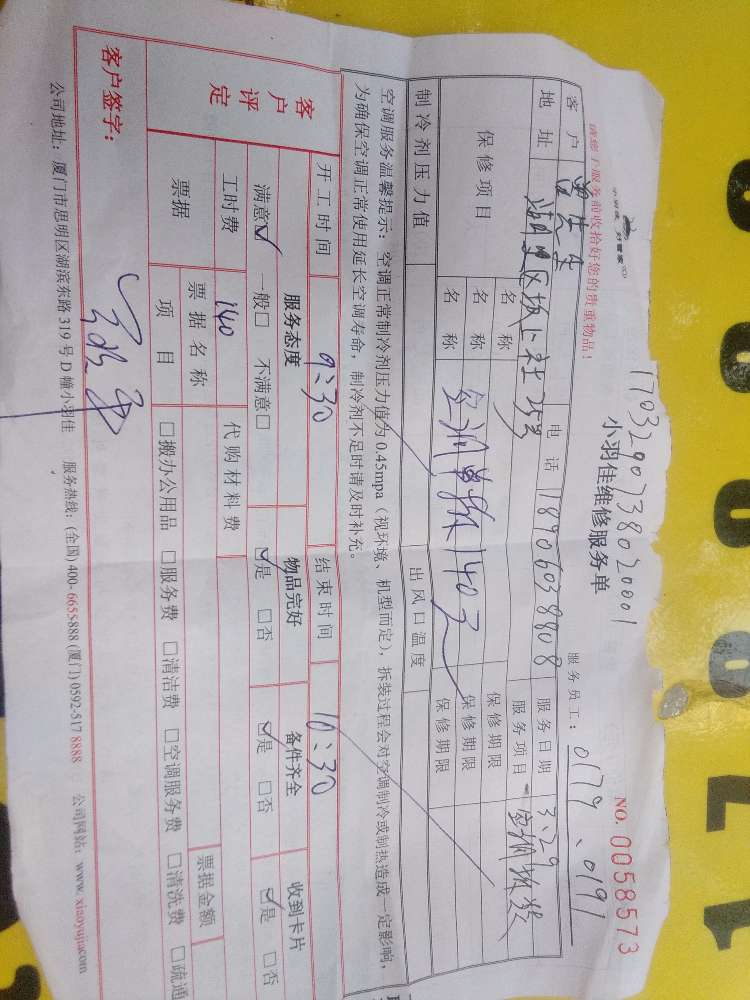 1703290738020001
小羽佳 好管家
小羽佳维修服务单
NO. 0058573
请您于服务前收拾好您的贵重物品!
服务员工: 0179、0191
客户 曾先生 电话 18906038808 服务日期 3.29
地址 湖里区坂上社25号 服务项目 空调拆装
保修项目 名称 保修期限
名称 空调单拆 140元 保修期限
名称 保修期限
制冷剂压力值 出风口温度
空调服务温馨提示: 空调正常制冷剂压力值为 0.45mpa (视环境、机型而定), 拆装过程会对空调制冷或制热造成一定影响,
为确保空调正常使用延长空调寿命, 制冷剂不足时请及时补充。
开工时间 9:30 结束时间 10:30
客户评定 服务态度 物品完好 备件齐全 收到卡片
满意☑ 一般□ 不满意□ ☑是 □否 ☑是 □否 ☑是 □否
工时费 140 代购材料费
票据 票据名称 票据金额
项目 □搬办公用品 □服务费 □清洁费 □空调服务费 □清洗费 □疏通
客户签字:
公司地址: 厦门市思明区湖滨东路 319 号 D 幢小羽佳 服务热线: (全国) 400-6655-888 (厦门) 0592-517 8888 公司网站: www.xiaoyujia.com